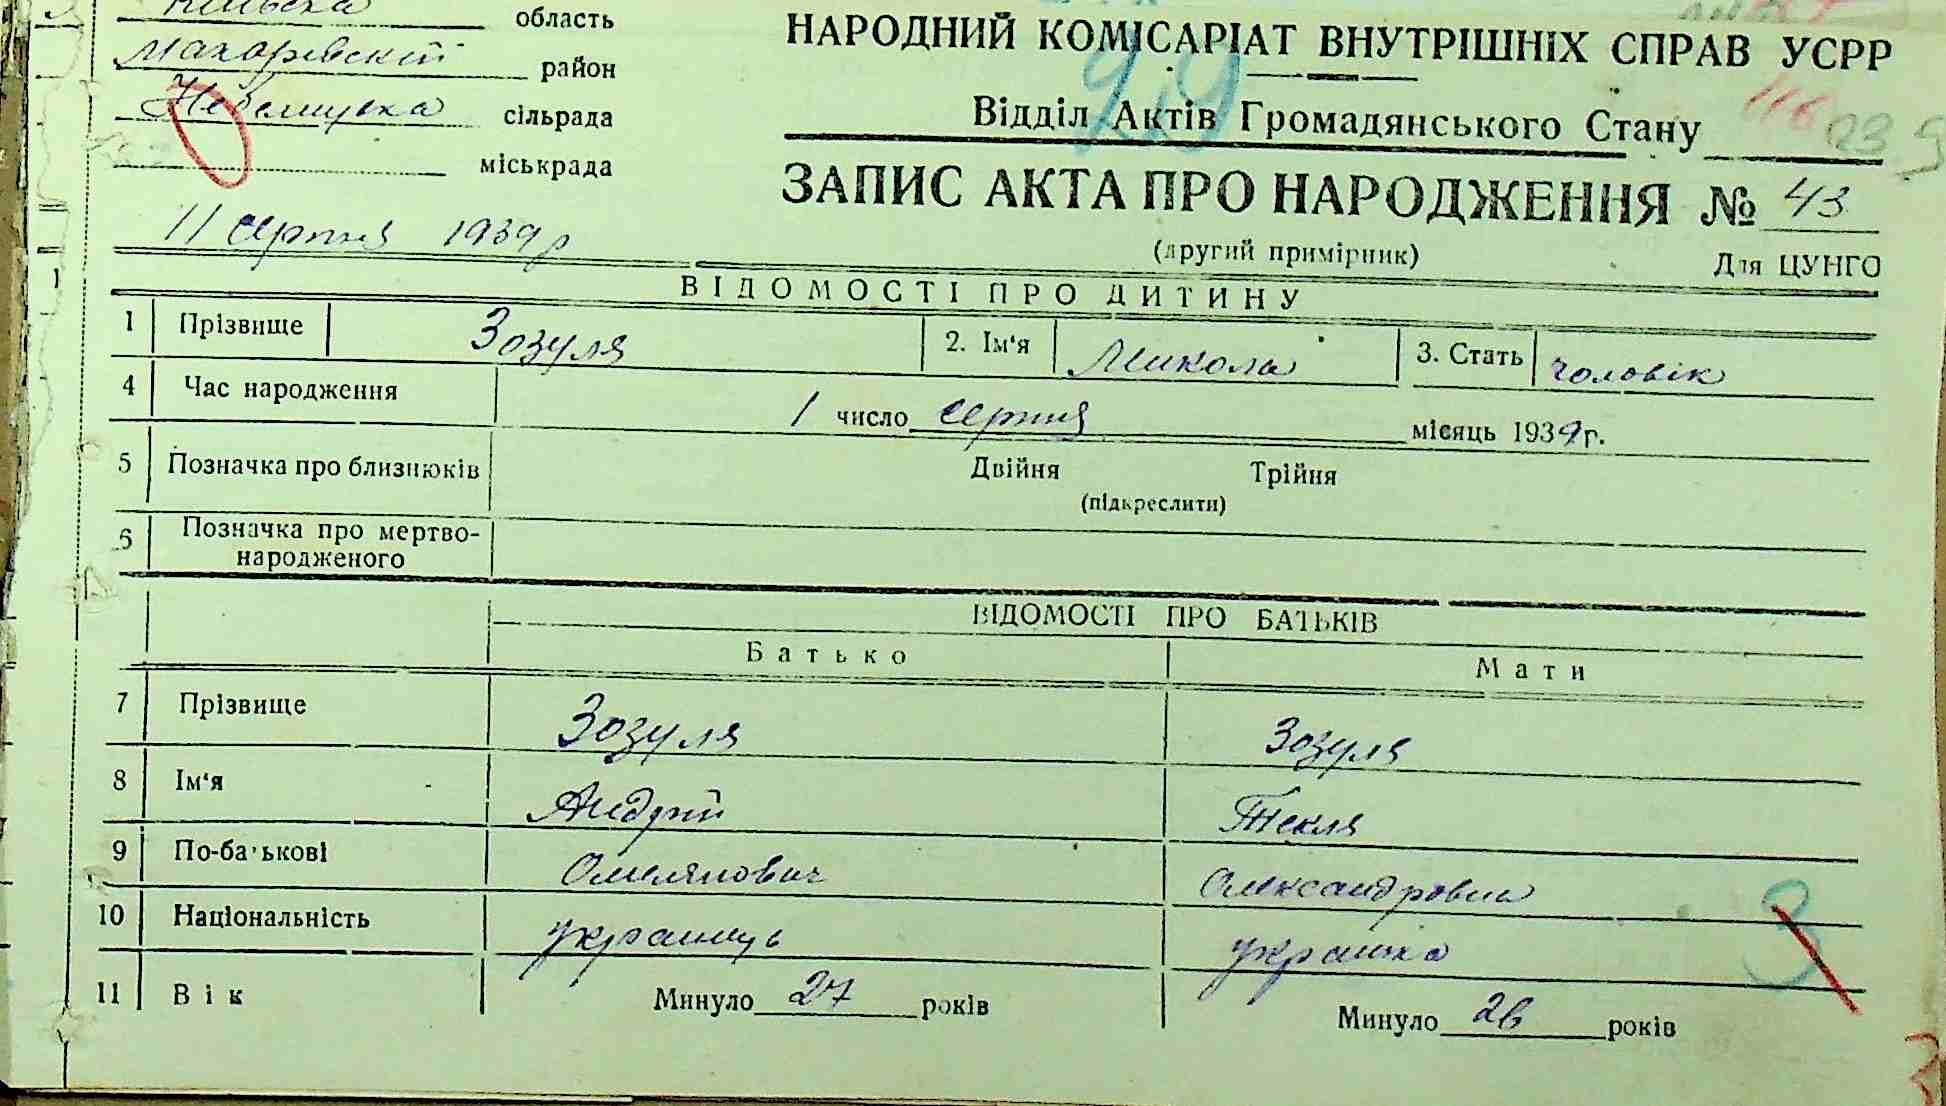 Київська область
Макарівський район
Небелицька сільрада
міськрада
11 серпня 1939 р
НАРОДНИЙ КОМІСАРІАТ ВНУТРІШНІХ СПРАВ УСРР
Відділ Актів Громадянського Стану
ЗАПИС АКТА ПРО НАРОДЖЕННЯ № 43
(другий примірник) Для ЦУНГО
ВІДОМОСТІ ПРО ДИТИНУ
1 Прізвище Зозуля 2. Ім'я Микола 3. Стать чоловік
4 Час народження 1 число серпня місяць 1939 г.
5 Позначка про близнюків Двійня Трійня
(підкреслити)
6 Позначка про мертво-
народженого
ВІДОМОСТІ ПРО БАТЬКІВ
Батько Мати
7 Прізвище Зозуля Зозуля
8 Ім'я Андрій Текля
9 По-батькові Омелянович Олександровна
10 Національність українець українка
11 Вік Минуло 27 років Минуло 26 років